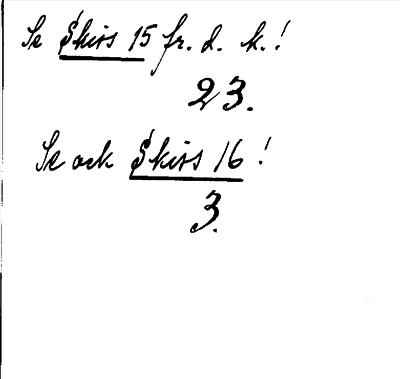 Se Skiss 15 fr. d. k.!
23.
Se ock Skiss 16!
3.